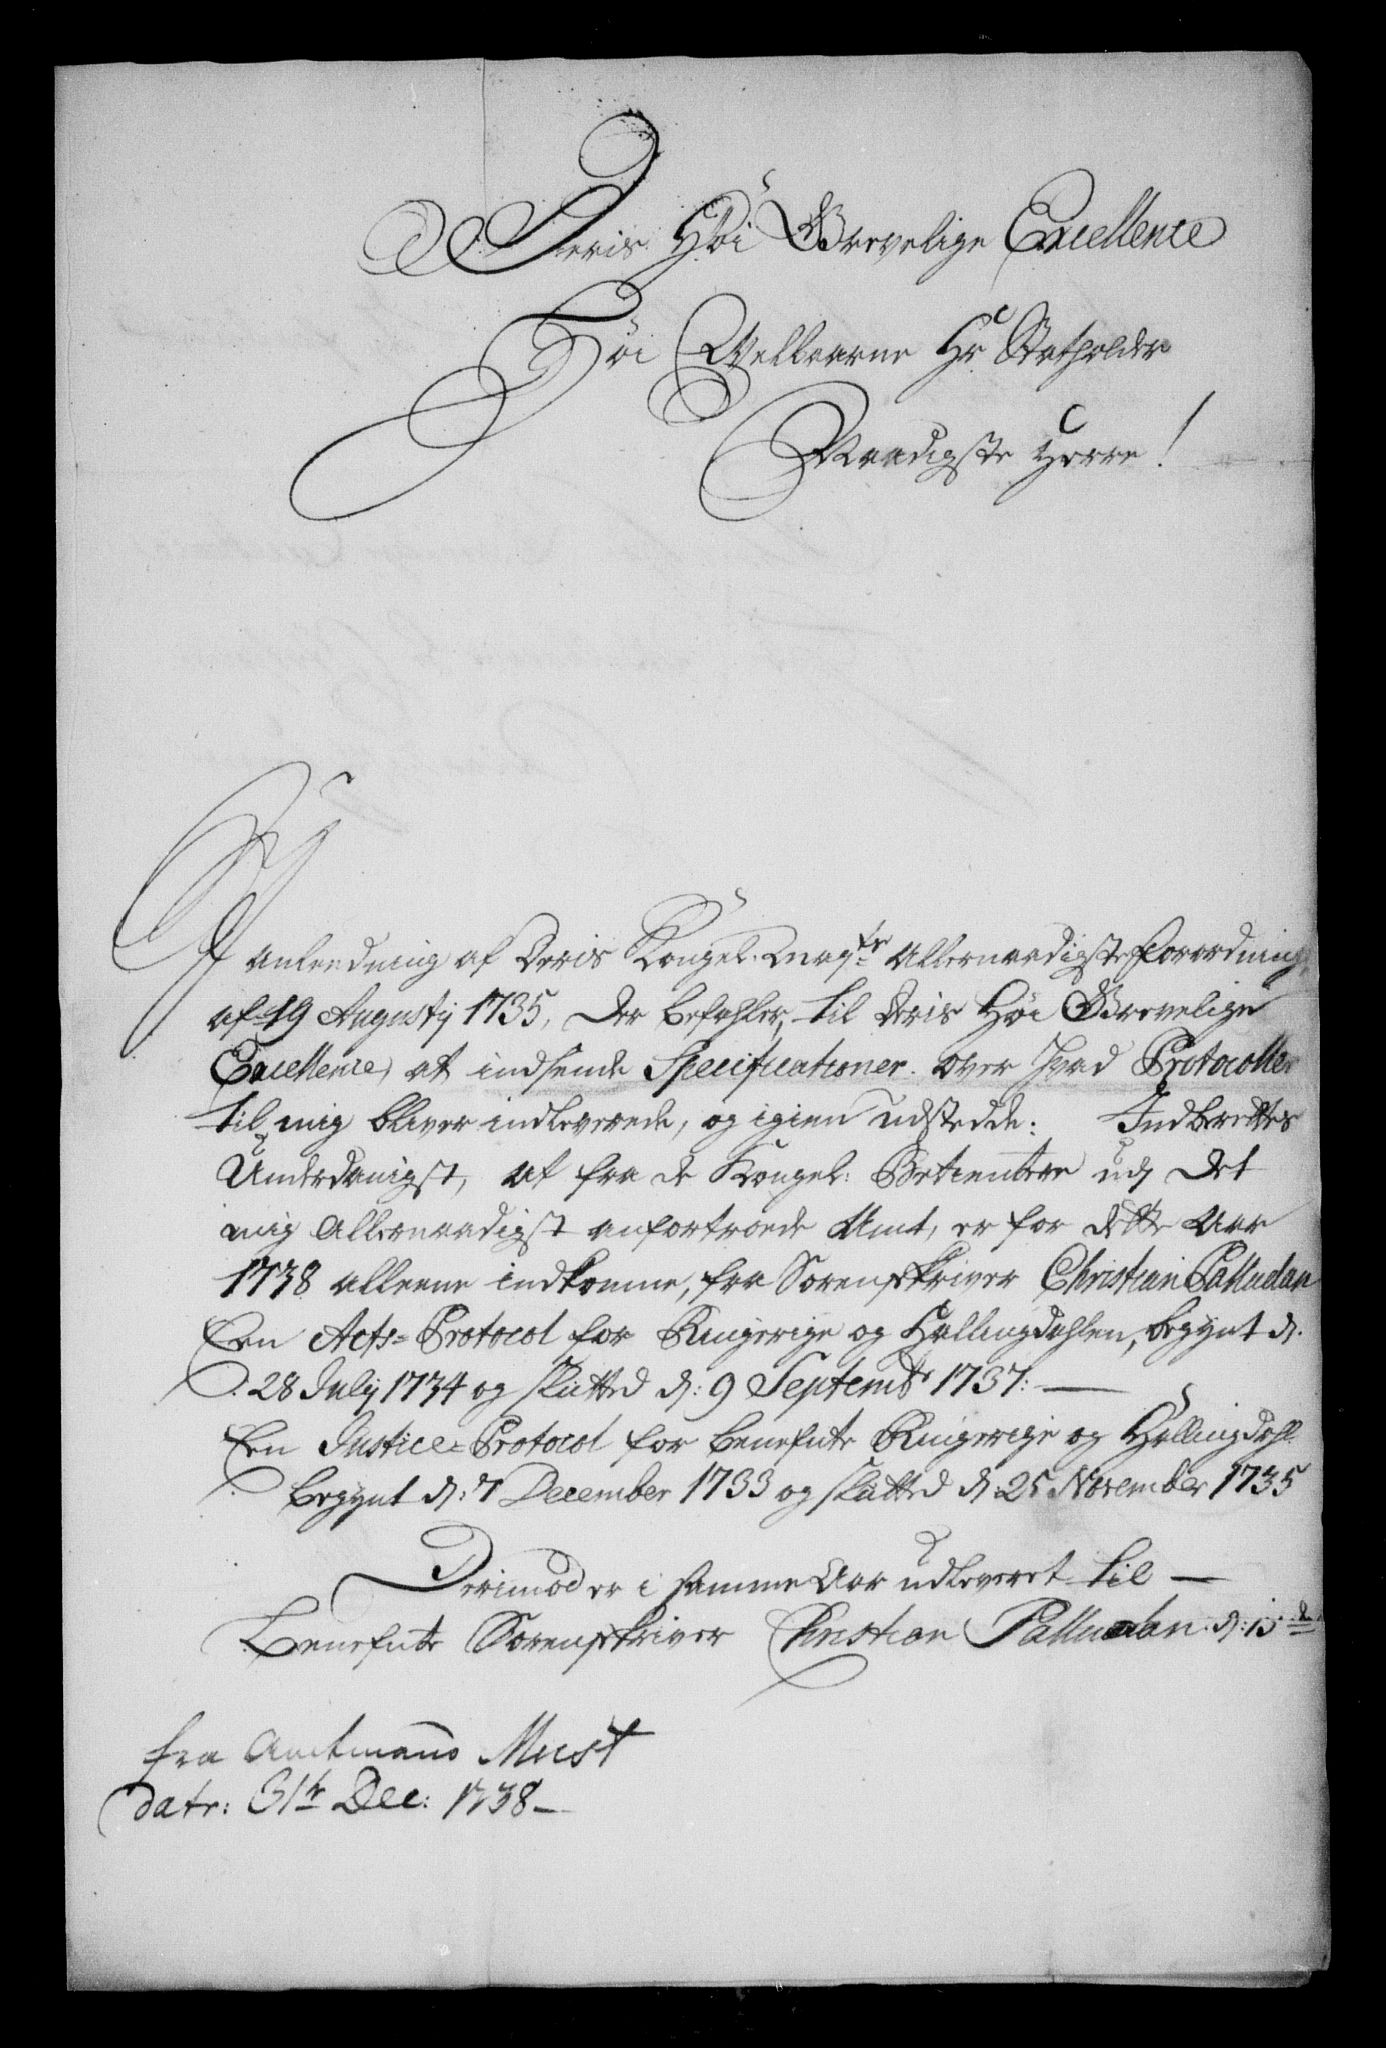 Deris Høi Grevelige Excellence
Høi Velbaarne Hr Statholder
Naadigste Herre!
I anledning af Deris Kongel. Mayts allernaadigste forordning
af 19 Augusty 1735, der befahler, til Deris Høi Grevelige
Excellence, at indsende Specificationer over hvad Protocoller
til mig bliver indleverede, og igien udstedde; Indberettes
Underdanigst, at fra de Kongel: Betientere udj det
mig allernaadigst anfortroede Amt, er for dette Aar
1738 alleene indkomme, fra Sorenskriver Christian Palludan
Een Acts-Protocol for Ringerige og Hallingdahlen, begynt d.
28 July 1734 og slutted d: 9 Septembr 1737:
Een Justice-Protocol for benefnte Ringerige og Hallingdahl
begynt d: 7 December 1733 og slutted d. 25 November 1735
Derimod er i samme Aar udleveret til
Benefnte Sorenskriver Christian Palludan d: 15de
fra Amtmand Must
datr: 31te Dec: 1738